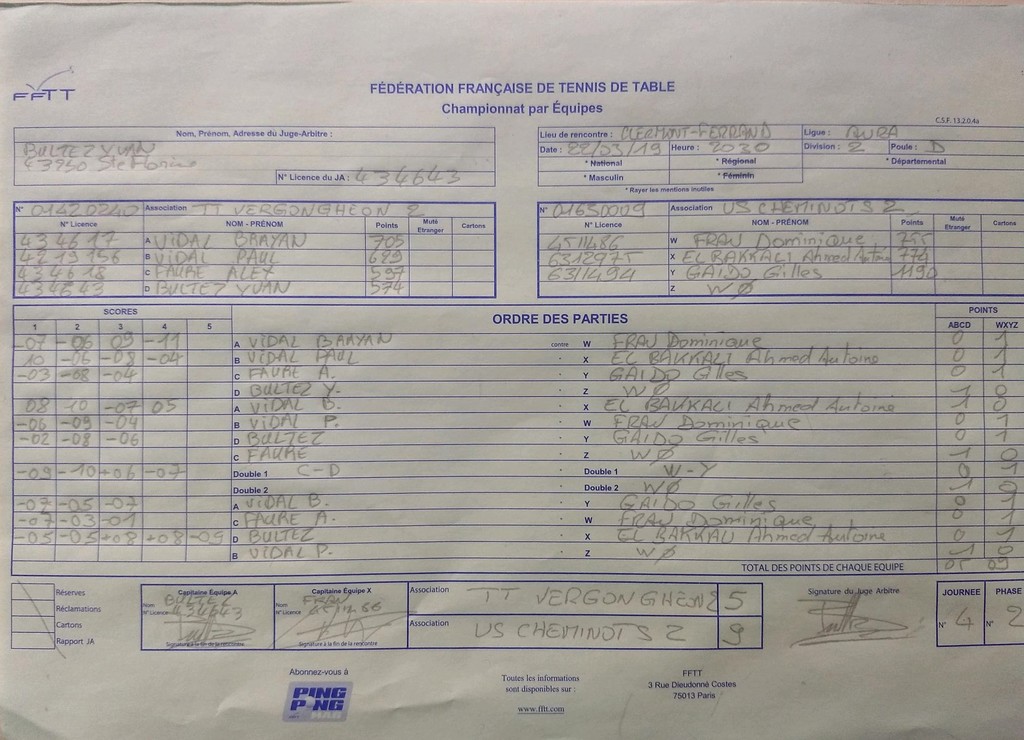 FFTT
FÉDÉRATION FRANÇAISE DE TENNIS DE TABLE
Championnat par Équipes
C.S.F. 13.2.0.4a
Nom, Prénom, Adresse du Juge-Arbitre :
BULTEZ YVAN
43950 Ste Florine
N° Licence du JA : 434643
Lieu de rencontre : CLERMONT-FERRAND Ligue : AURA
Date : 22/03/19 Heure : 2030 Division : 2 Poule : D
* National * Régional * Départemental
* Masculin * Féminin
* Rayer les mentions inutiles
N° 01420240 Association TT VERGONGHEON 2
N° Licence NOM - PRÉNOM Points Muté Etranger Cartons
434617 A VIDAL BRAYAN 705
4219156 B VIDAL PAUL 689
434618 C FAURE ALEX 597
434643 D BULTEZ YVAN 574
N° 01630009 Association US CHEMINOTS 2
N° Licence NOM - PRÉNOM Points Muté Etranger Cartons
4511486 W FRAU Dominique 755
6312975 X EL BAKKALI Ahmed Antoine 774
6311494 Y GAIDO Gilles 1190
Z WØ
SCORES ORDRE DES PARTIES POINTS
1 2 3 4 5 ABCD WXYZ
-07 -06 09 -11 A VIDAL BRAYAN contre W FRAU Dominique 0 1
10 -06 -08 -04 B VIDAL PAUL " X EL BAKKALI Ahmed Antoine 0 1
-03 -08 -04 C FAURE A. " Y GAIDO Gilles 0 1
D BULTEZ Y. " Z WØ 1 0
08 10 -07 05 A VIDAL B. " X EL BAKKALI Ahmed Antoine 1 0
-06 -09 -04 B VIDAL P. " W FRAU Dominique 0 1
-02 -08 -06 D BULTEZ " Y GAIDO Gilles 0 1
C FAURE " Z WØ 1 0
-09 -10 +06 -07 Double 1 C-D Double 1 W-Y 0 1
Double 2 Double 2 WØ 1 0
-07 -05 -07 A VIDAL B. " Y GAIDO Gilles 0 1
-07 -03 -01 C FAURE A. " W FRAU Dominique 0 1
-05 -05 +08 +08 -09 D BULTEZ " X EL BAKKALI Ahmed Antoine 0 1
B VIDAL P. " Z WØ 1 0
TOTAL DES POINTS DE CHAQUE EQUIPE 05 09
Réserves
Réclamations
Cartons
Rapport JA
Capitaine Équipe A
Nom BULTEZ
N° Licence 434643
Signature à la fin de la rencontre
Capitaine Équipe X
Nom FRAU
N° Licence
Signature à la fin de la rencontre
Association TT VERGONGHEON 2 5
Association US CHEMINOTS 2 9
Signature du Juge Arbitre
JOURNEE N° 4
PHASE N° 2
Abonnez-vous à
PING PONG MAG
Toutes les informations
sont disponibles sur :
www.fftt.com
FFTT
3 Rue Dieudonné Costes
75013 Paris